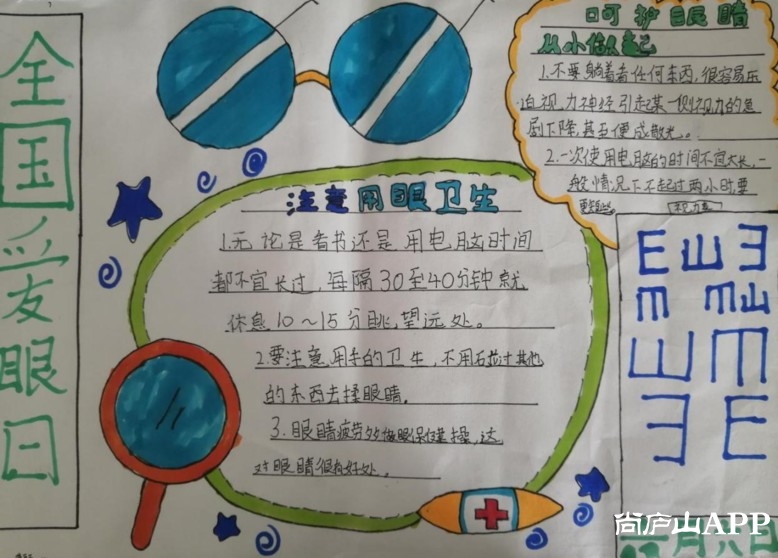 全国爱眼日
呵护眼睛
从小做起
1.不要躺着看任何东西,很容易压
迫视力神经引起某一侧视力的急
剧下降,甚至便成散光。
2.一次使用电脑的时间不宜太长,一
般情况下不超过两小时要
视力表
注意用眼卫生
1.无论是看书还是用电脑时间
都不宜长过,每隔30至40分钟就
休息10～15分眺,望远处。
2.要注意用手的卫生,不用其他
的东西去揉眼睛.
3.眼睛疲劳多做眼保健操,这
对眼睛很有好处.
E Ш Ǝ
m m ш
Ш m
Ǝ E
六月六日
尚庐山APP